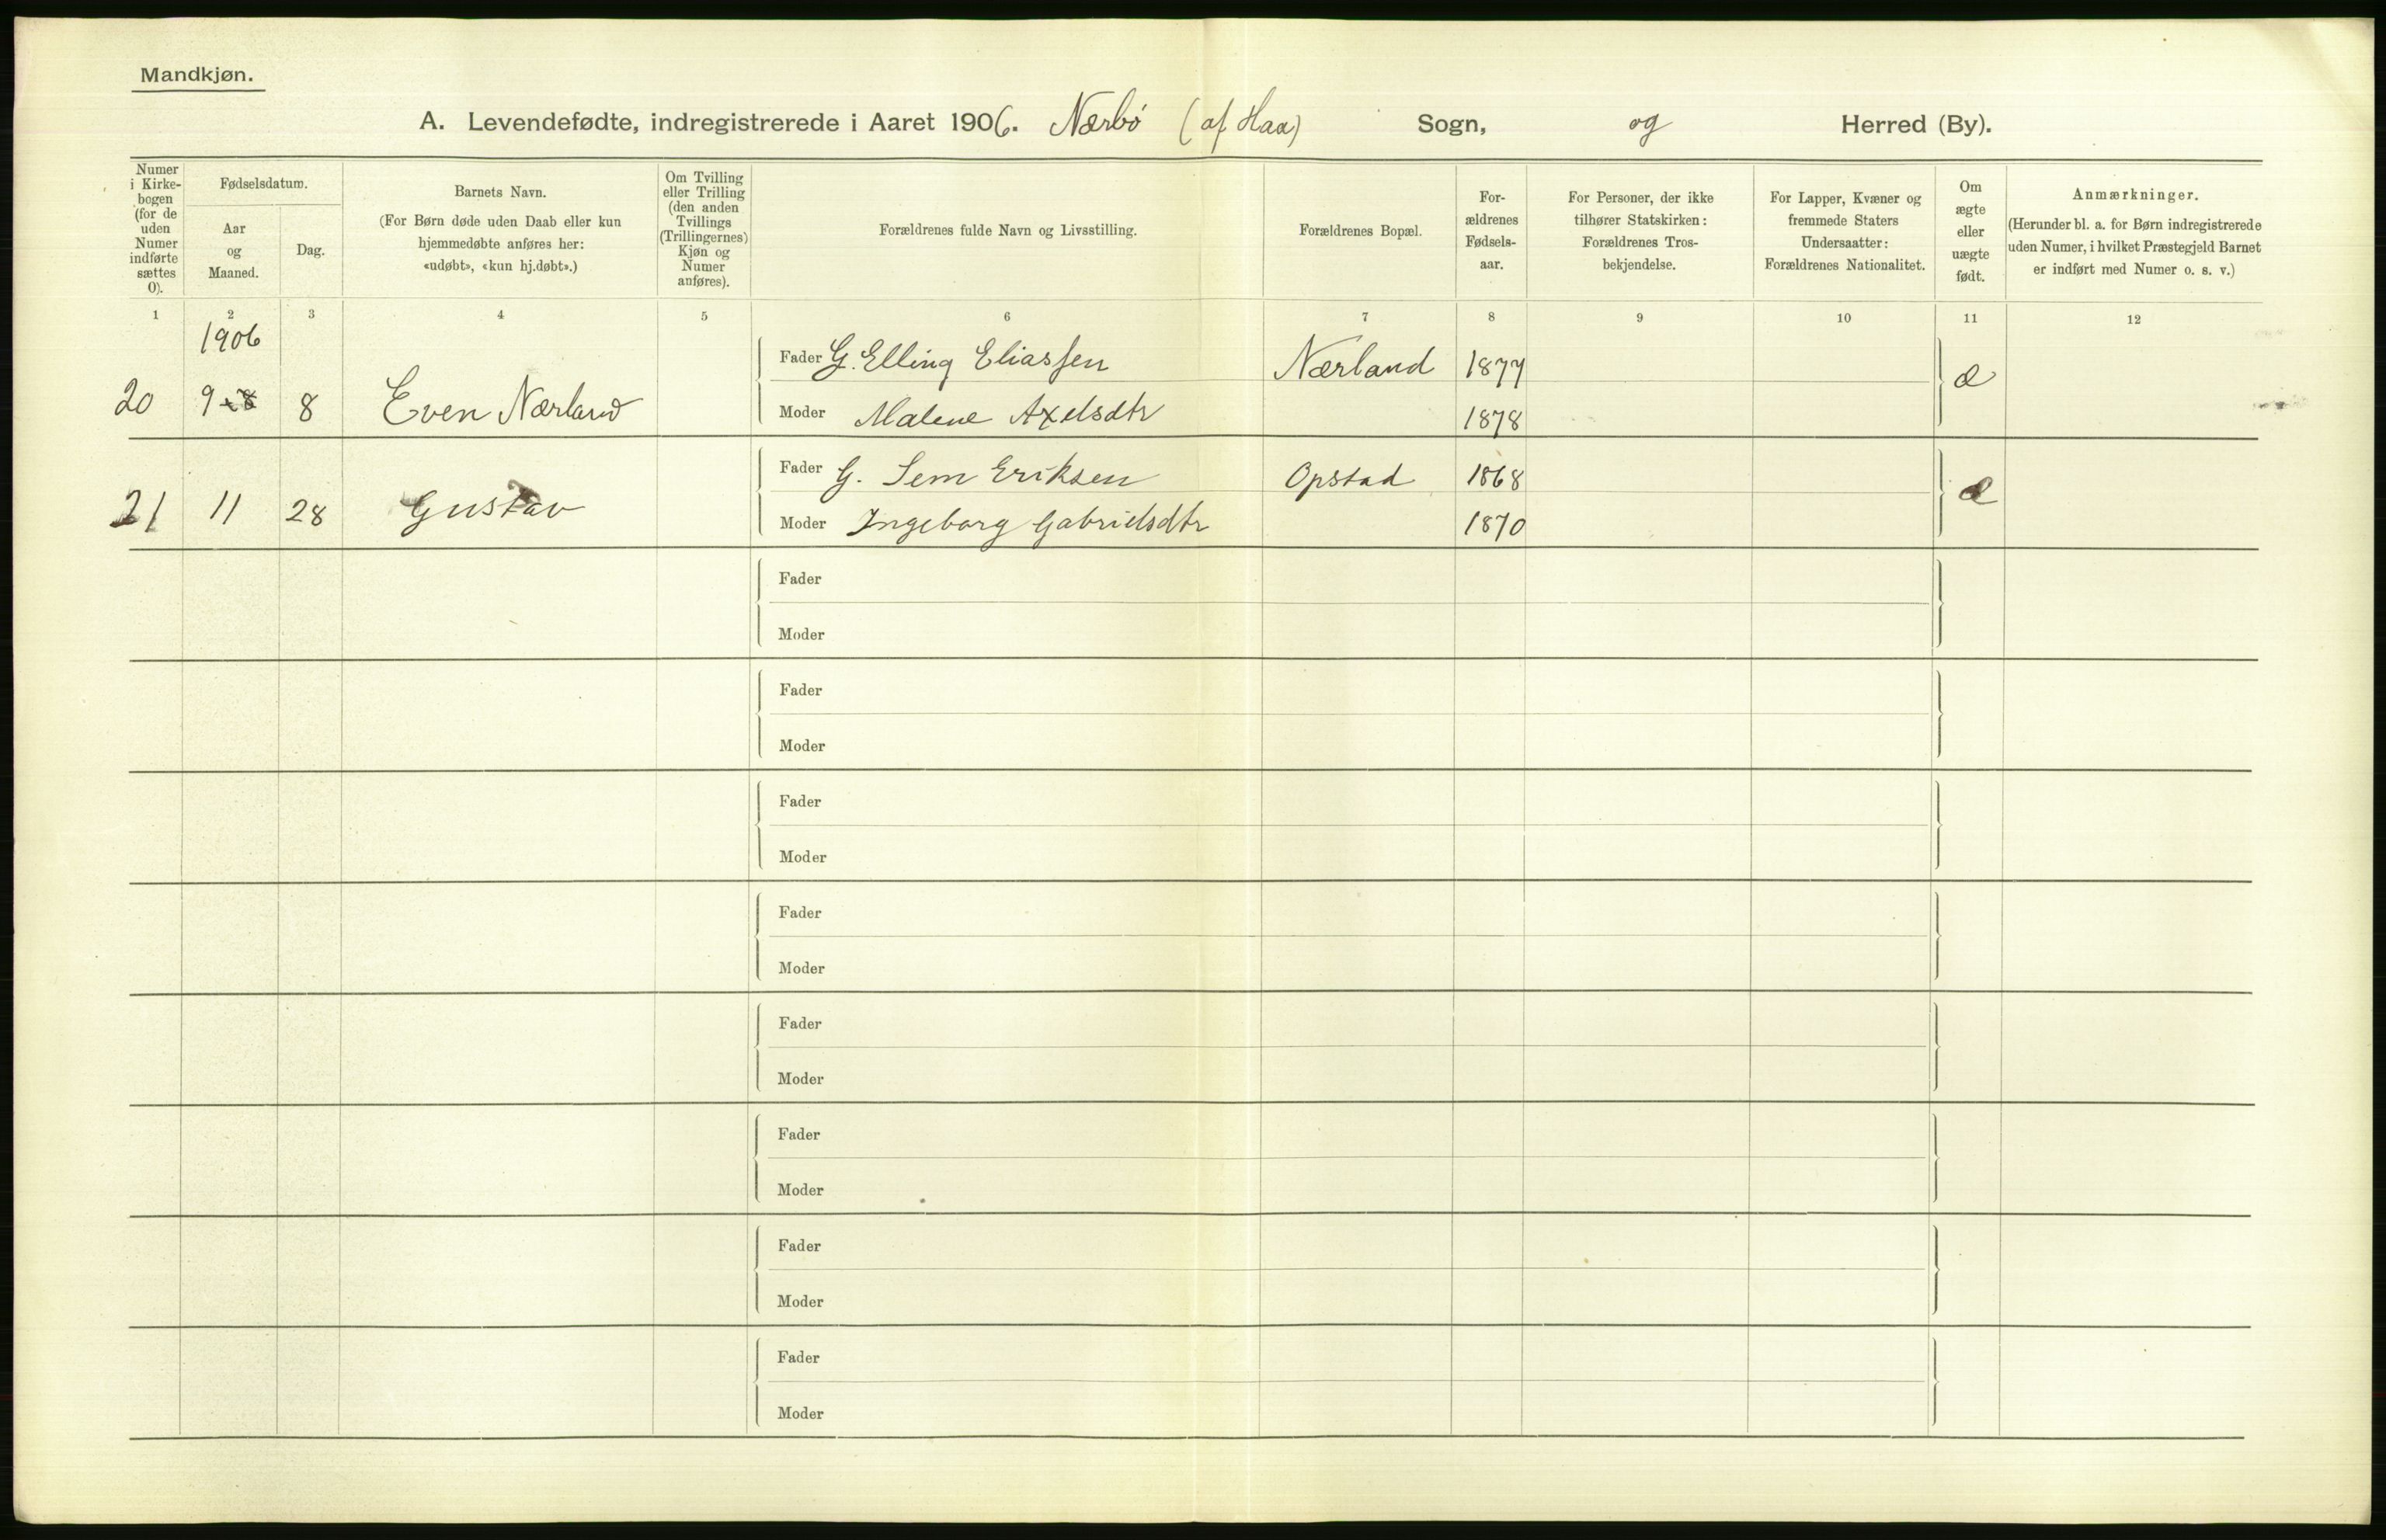 Mandkjøn.
A. Levendefødte, indregistrerede i Aaret 1906. Nærbö (af Haa) Sogn, og Herred (By).
Numer i Kirkebogen (for de uden Numer indførte sættes 0).
Fødselsdatum.
Aar og Maaned.
Dag.
Barnets Navn.
(For Børn døde uden Daab eller kun
hjemmedøbte anføres her:
«udøbt», «kun hj.døbt».)
Om Tvilling
eller Trilling
(den anden
Tvillings
(Trillingernes)
Kjøn og
Numer
anføres).
Forældrenes fulde Navn og Livsstilling.
Forældrenes Bopæl.
For-
ældrenes
Fødsels-
aar.
For Personer, der ikke
tilhører Statskirken:
Forældrenes Tros-
bekjendelse.
For Lapper, Kvæner og
fremmede Staters
Undersaatter:
Forældrenes Nationalitet.
Om
ægte
eller
uægte
født.
Anmærkninger.
(Herunder bl. a. for Børn indregistrerede
uden Numer, i hvilket Præstegjeld Barnet
er indført med Numer o. s. v.)
1 2 3 4 5 6 7 8 9 10 11 12
1906
Fader G. Elling Eliassen Nærland 1877 æ
20 9 8 Even Nærland Moder Malene Axelsdtr 1878
Fader G. Sem Eriksen Opstad 1868 æ
21 11 28 Gustav Moder Ingeborg Gabrielsdtr 1870
Fader
Moder
Fader
Moder
Fader
Moder
Fader
Moder
Fader
Moder
Fader
Moder
Fader
Moder
Fader
Moder